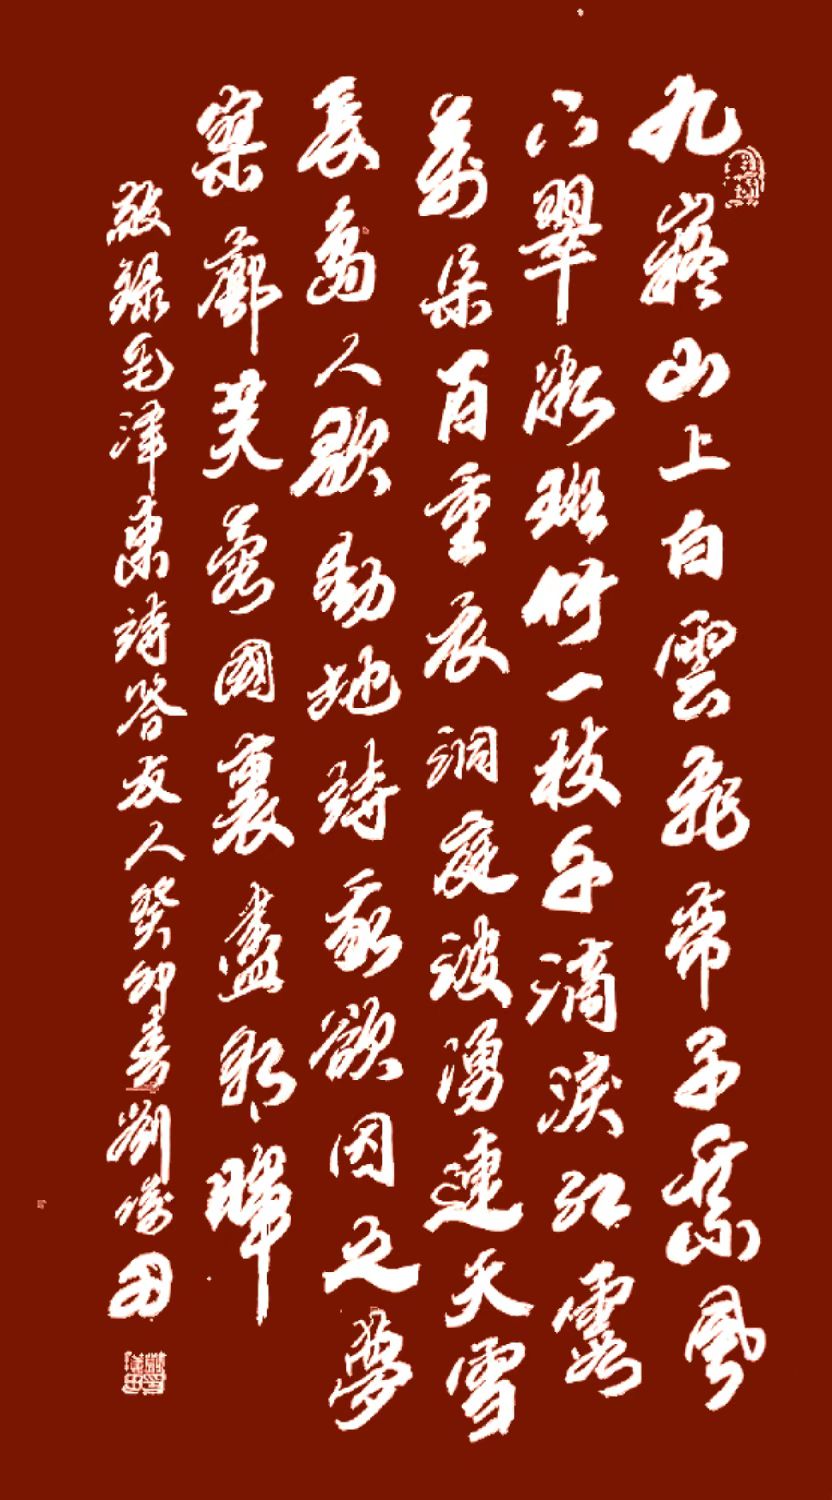 九嶷山上白雲飛帝子乘風
下翠微斑竹一枝千滴淚紅霞
萬朵百重衣洞庭波湧連天雪
長島人歌動地詩我欲因之夢
寥廓芙蓉國裏盡朝暉
敬錄毛澤東詩答友人癸卯春劉